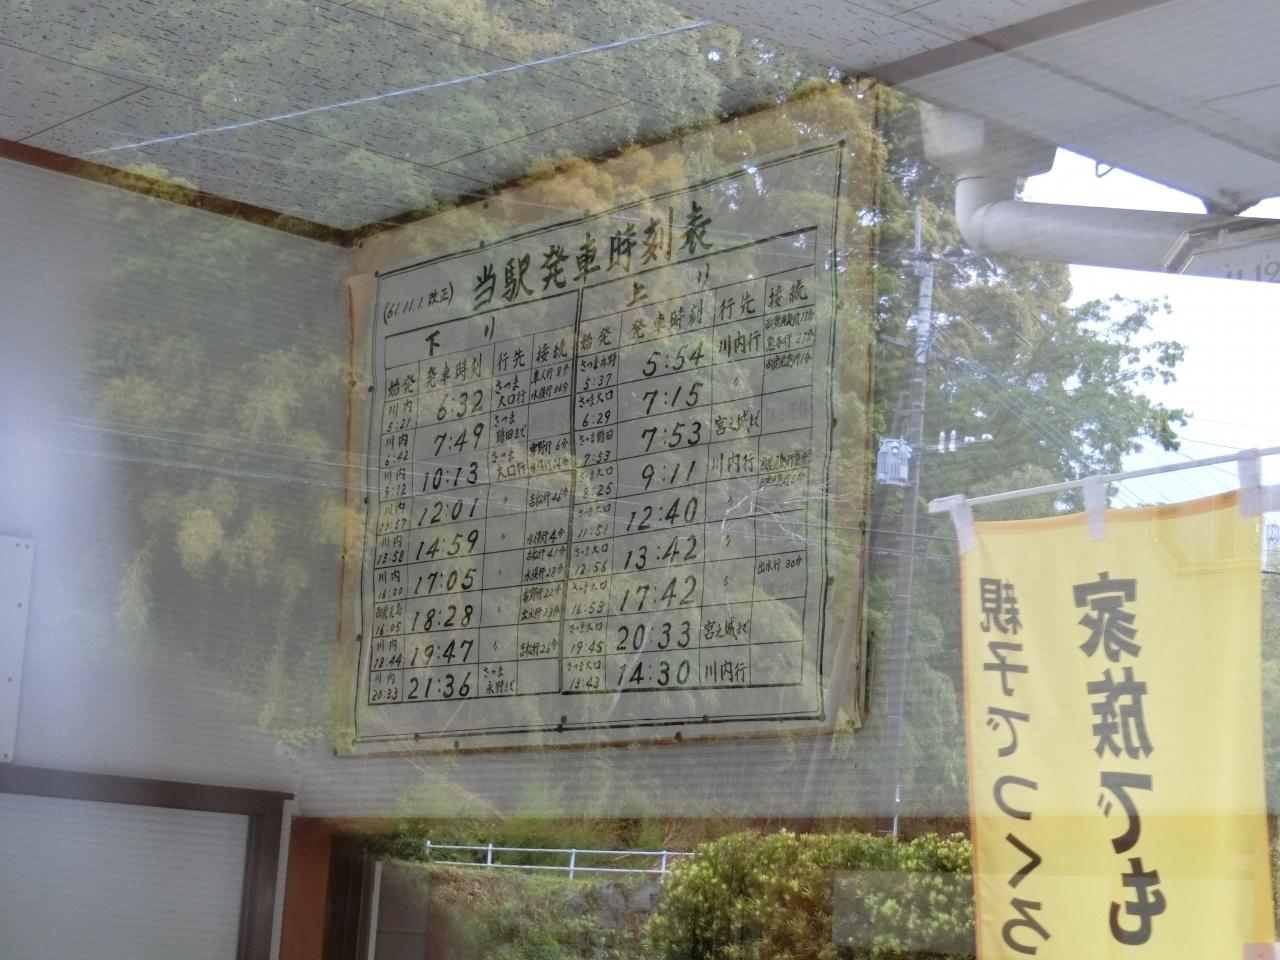 当駅発車時刻表
(61.11.1.改正)
下り
始発 発車時刻 行先 接続
川内 5:21 6:32 さつま大口行
川内 6:42 7:49 さつま鶴田まで
川内 9:12 10:13 さつま大口行
川内 10:57 12:01 〃 吉松行46分
川内 13:58 14:59 〃 水俣行4分 吉松行41分
川内 16:00 17:05 〃 水俣行28分
16:05 18:28 〃 出水行23分
川内 18:44 19:47 〃 吉松行26分
川内 20:33 21:36 さつま永野まで
上り
始発 発車時刻 行先 接続
さつま永野 5:37 5:54 川内行
さつま大口 6:29 7:15 〃
さつま鶴田 7:53 7:53 宮之城まで
さつま大口 8:25 9:11 川内行
さつま大口 11:51 12:40 〃
さつま大口 12:56 13:42 〃
さつま大口 16:53 17:42 〃 出水行30分
さつま大口 19:45 20:33 宮之城まで
さつま大口 13:43 14:30 川内行
家族でも
親子でつくろ